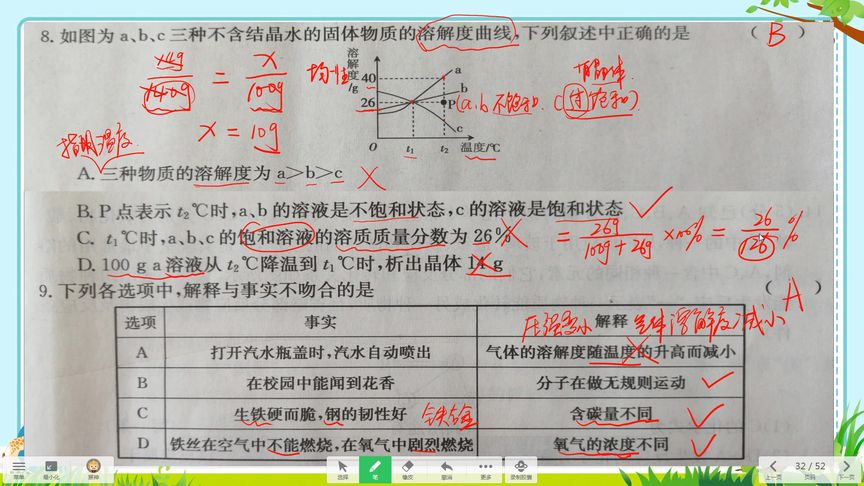 8. 如图为 a、b、c 三种不含结晶水的固体物质的溶解度曲线,下列叙述中正确的是 ( B )
14g
140g
=
x
100g
x = 10g
均一性
溶解度/g
40
26
a
b
P
c
O
t₁
t₂
温度/℃
(a、b 不饱和
c (过饱和)
指明温度
A. 三种物质的溶解度为 a>b>c
B. P 点表示 t₂℃时,a、b 的溶液是不饱和状态,c 的溶液是饱和状态
C. t₁℃时,a、b、c 的饱和溶液的溶质质量分数为 26%
= 26g / 100g + 26g × 100% = 26 / 126 %
D. 100 g a 溶液从 t₂℃降温到 t₁℃时,析出晶体 14 g
9. 下列各选项中,解释与事实不吻合的是 ( A )
压强变小 气体溶解度减小
选项 事实 解释
A 打开汽水瓶盖时,汽水自动喷出 气体的溶解度随温度的升高而减小
B 在校园中能闻到花香 分子在做无规则运动
C 生铁硬而脆,钢的韧性好 铁合金 含碳量不同
D 铁丝在空气中不能燃烧,在氧气中剧烈燃烧 氧气的浓度不同
菜单 最小化 选择 笔 橡皮 撤消 更多 录制胶囊 上一页 32 / 52 页码 下一页